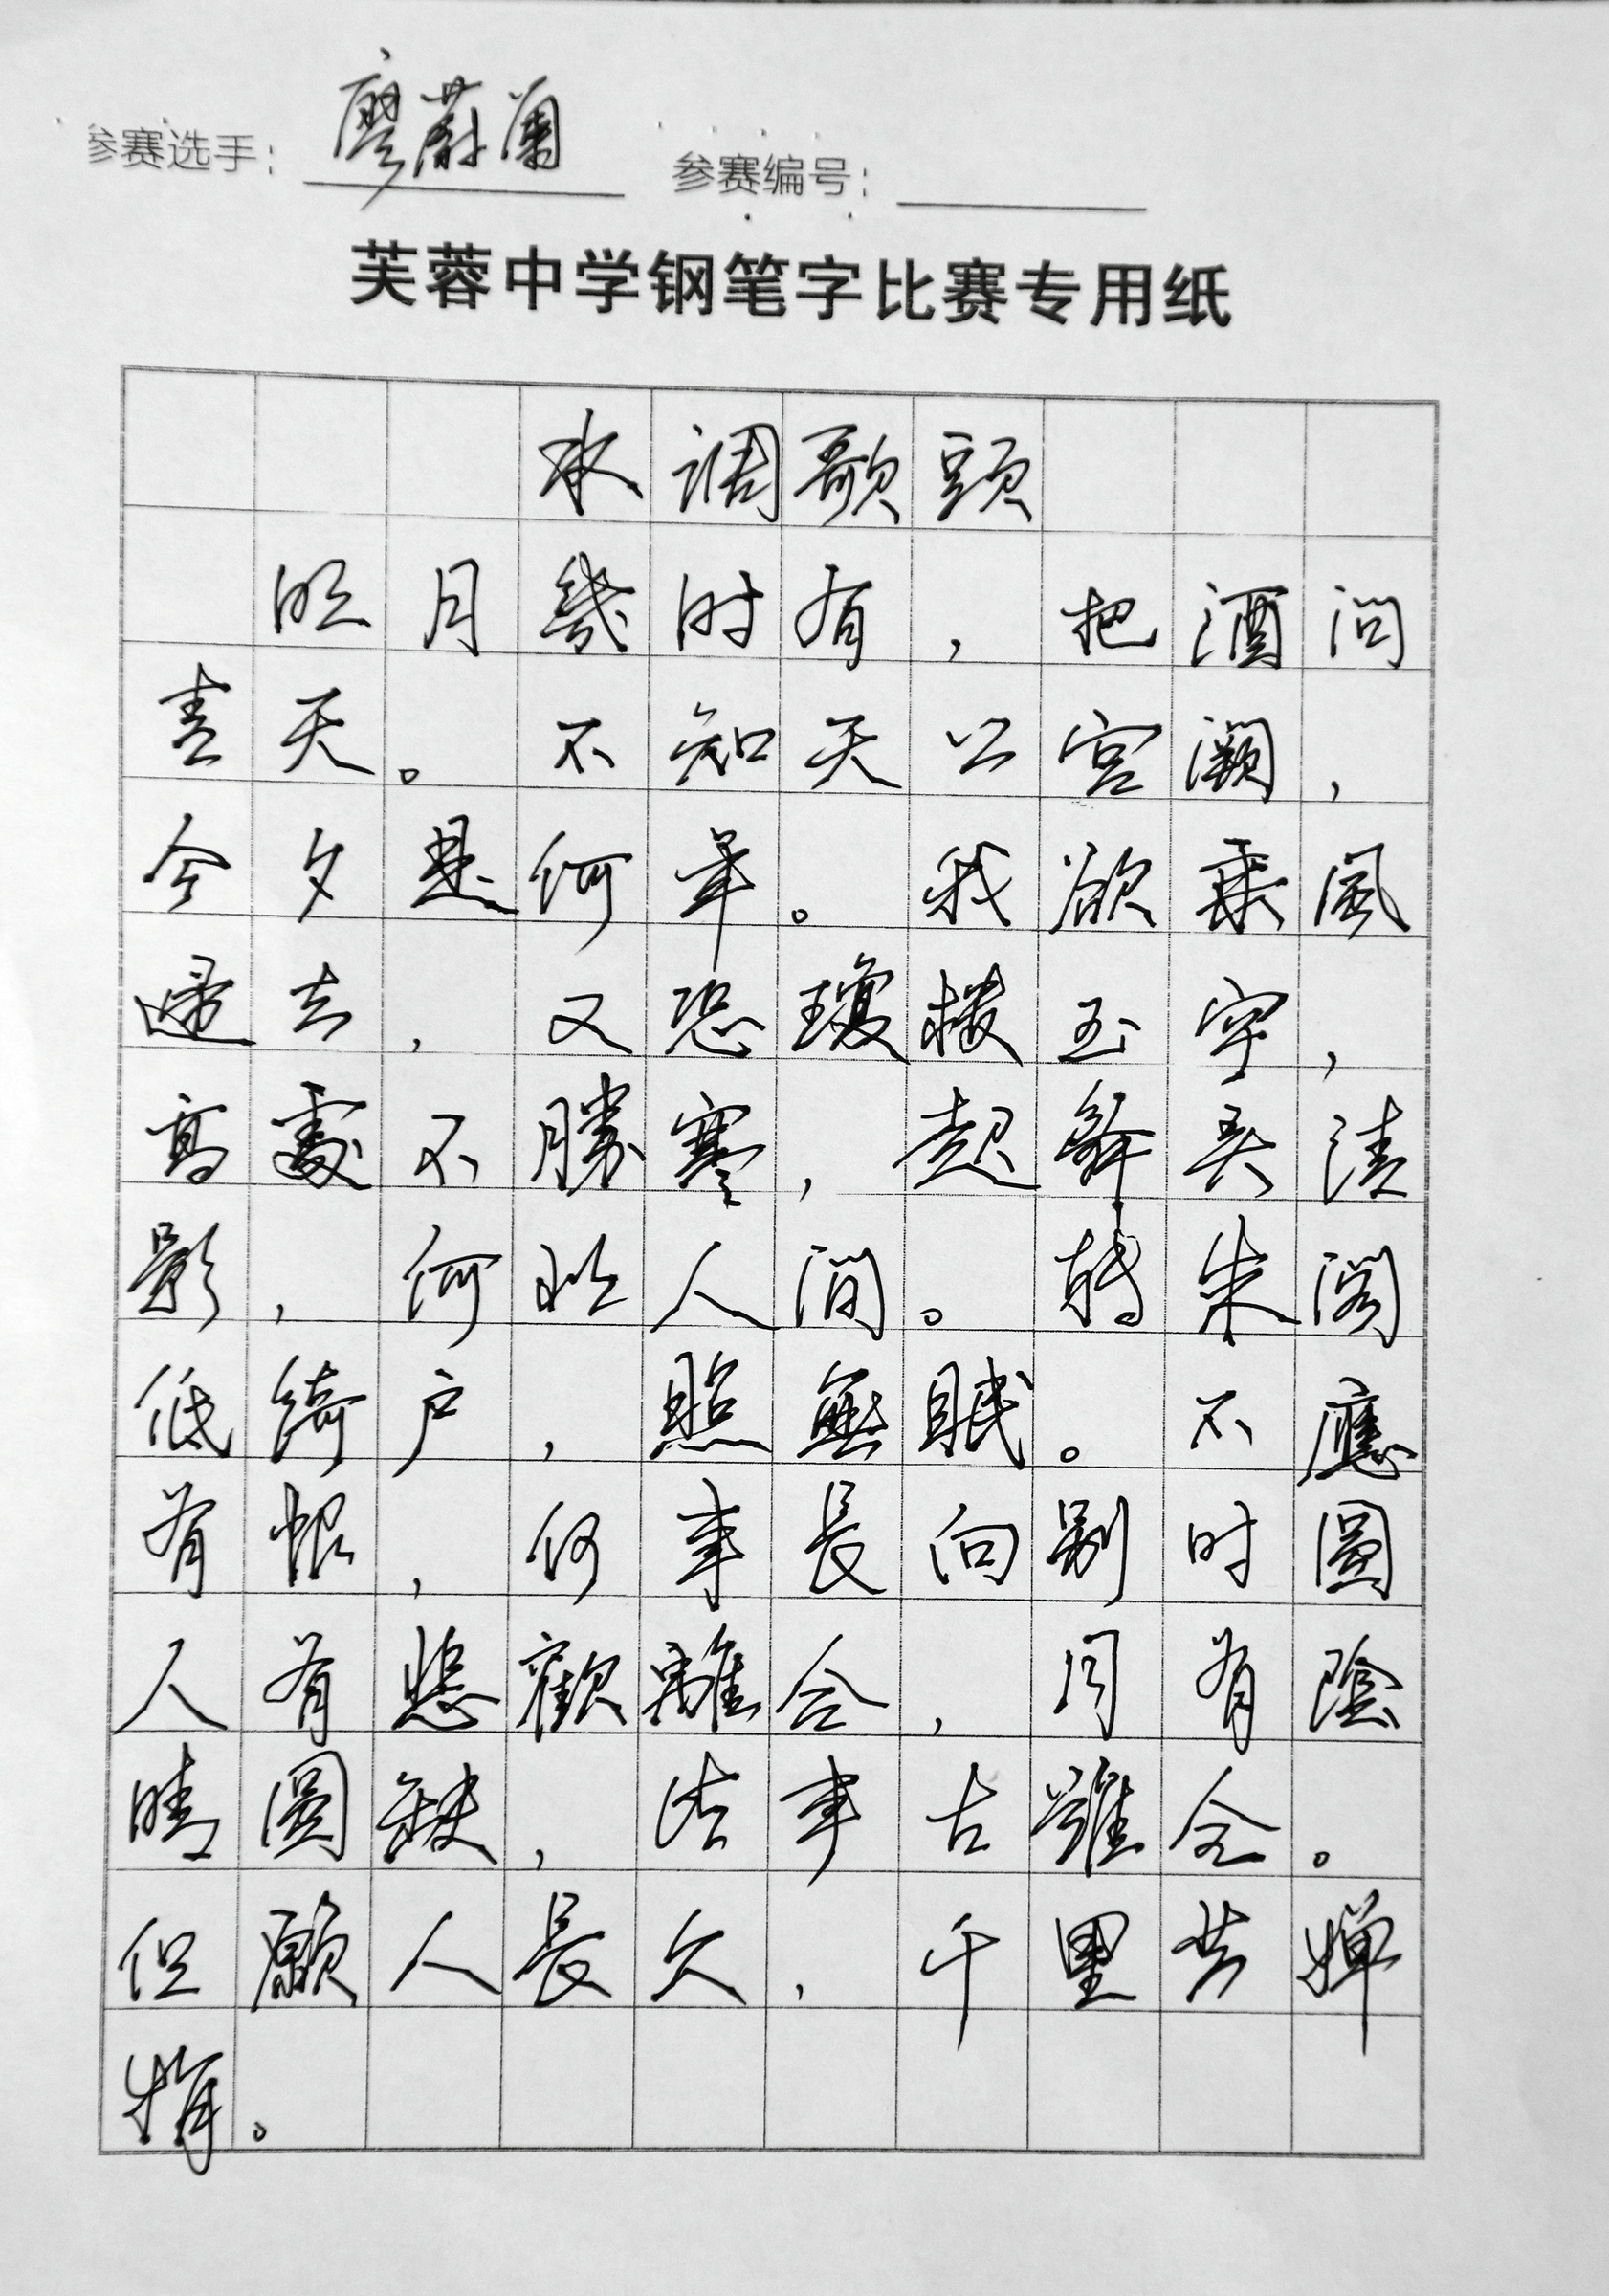 参赛选手：廖蔚蘭 参赛编号：
芙蓉中学钢笔字比赛专用纸
水调歌頭
明月幾时有，把酒问
青天。不知天公宫阙，
今夕是何年。我欲乘風
歸去，又恐瓊樓玉宇，
高處不勝寒，起舞弄清
影，何似人间。转朱阁
低綺户，照無眠。不應
有恨，何事長向别时圓
人有悲歡離合，月有陰
晴圓缺，此事古難全。
但願人長久，千里共嬋
娟。